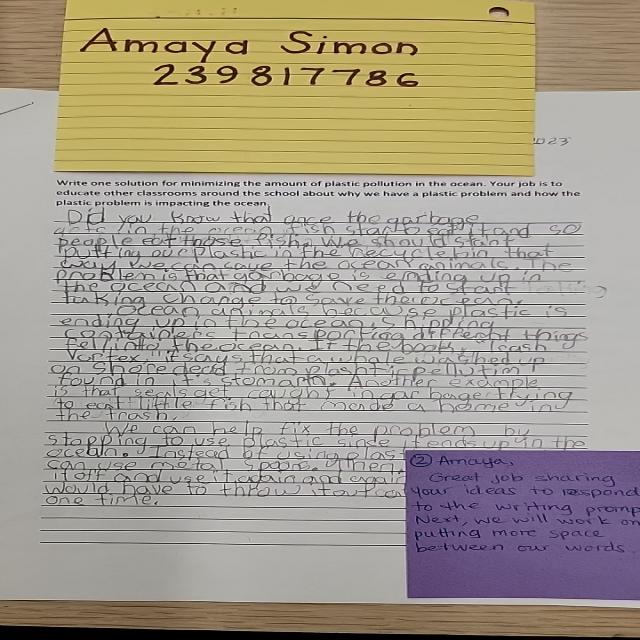 Amaya Simon
239817786
2023
Write one solution for minimizing the amount of plastic pollution in the ocean. Your job is to
educate other classrooms around the school about why we have a plastic problem and how the
plastic problem is impacting the ocean.
Did you know that once the garbage
gets in the ocean fish start to eat it and so
people eat those fish. We should start
putting our plastic in the recycle bin that
way we can save the ocean animals. The
problem is that garbage is ending up in
the ocean and we need to start
taking change to save the ocean.
Ocean animals because plastic is
ending up in the ocean. Shipping
transporting different things
fell into the ocean. If the book, Trash
Vortex, it says that a whale washed up
on shore dead from
found in it's Another example
is that seals get caught in garbage trying
to eat little fish that made a home in
the trash.
We can help fix the problem by
stopping to use plastic it ends up in the
Instead of using
can use metal spoons. Then,
it off and use it again and again
would have to throw it out
one time.
② Amaya,
Great job sharing
your ideas to respond
to the writing promp
Next, we will work on
putting more space
between our words.